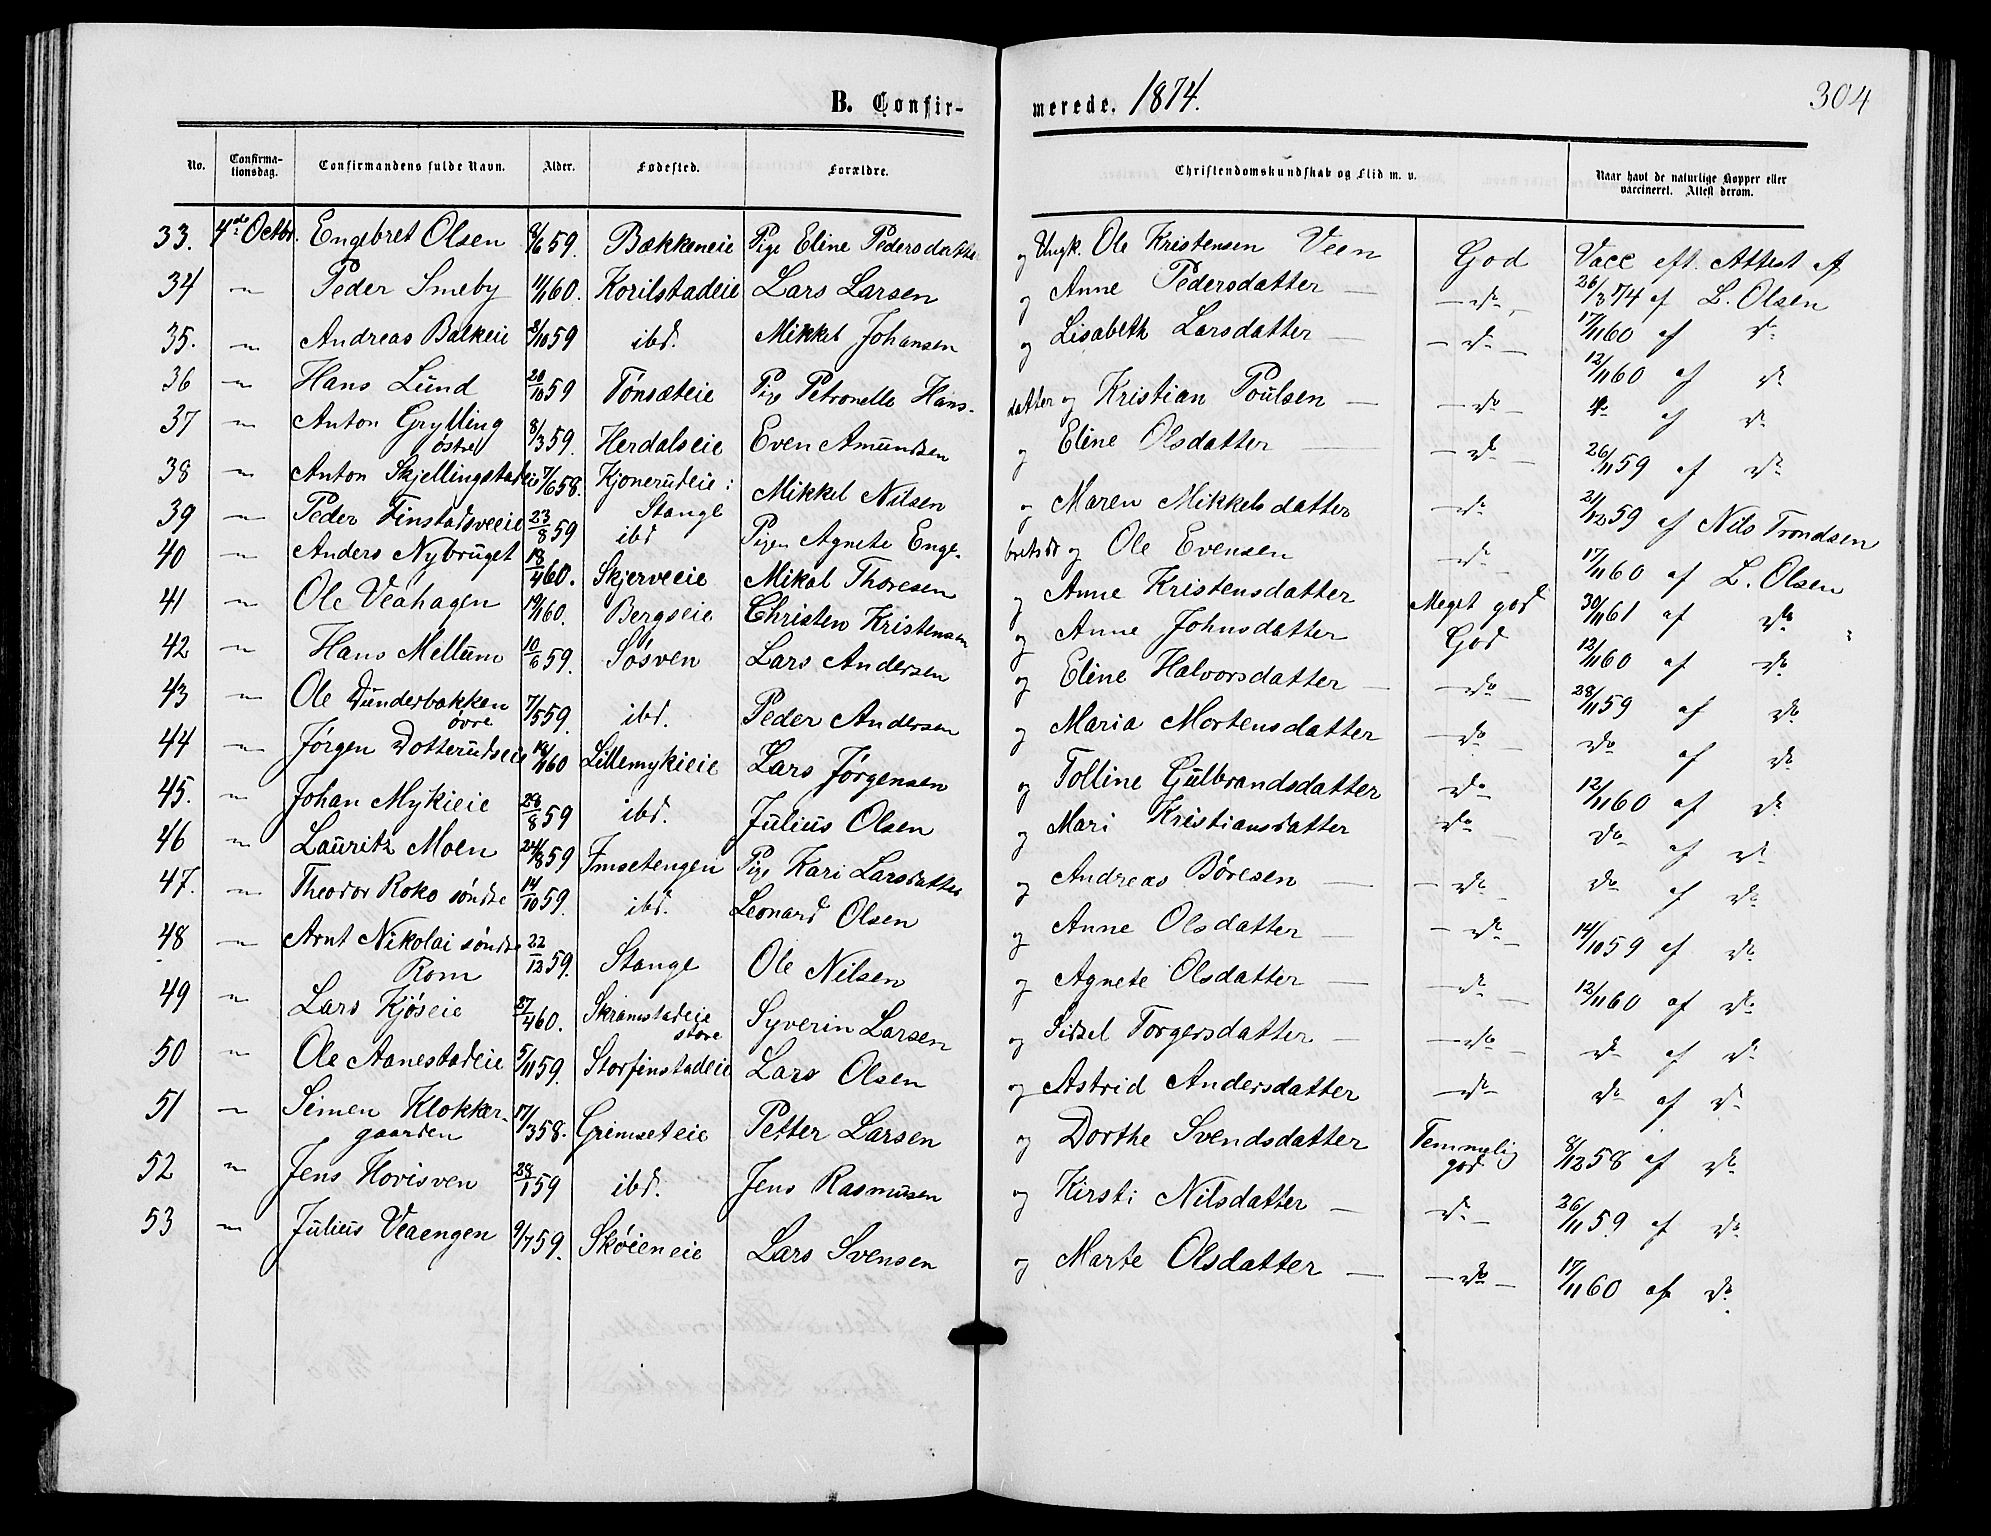 B. Confir-
merede. 1874.
304
No. Confirma-tionsdag. Confirmandens fulde Navn. Alder. Fødested. Forældre. Christendomskundskab og Flid m. v. Naar havt de naturlige Kopper eller vaccineret. Attest derom.
33. 4de Octbr. Engebret Olsen 8/6 59. Bækkeneie Pige Eline Pedersdatter og Ungk. Ole Kristensen Veen God Vacc eft. Attest af
34 " Peder Smeby 11/1 60. Korilstadeie Lars Larsen og Anne Pedersdatter — do 26/3 74 af L. Olsen
35. " Andreas Balkeie 8/10 59 ibd. Mikkel Johansen og Lisabeth Larsdatter — do 17/11 60 af do
36 " Hans Lund 20/10 59 Tønsæteie Pige Petronelle Hans-datter og Kristian Poulsen — do 12/11 60 af do
37 " Anton Grylling østre 8/3 59. Herdalseie Even Amundsen og Eline Olsdatter — do do af do
38 " Anton Skjellingstadeie 7/6 58. Kjonerudeie: Stange Mikkel Nilsen og Maren Mikkelsdatter do 26/11 59 af do
39 " Peder Finstadsveeie 23/8 59 ibd Pigen Agnete Enge-bretsdr og Ole Evensen do 21/12 59 af Nils Trondsen
40 " Anders Nybruget 18/4 60. Skjerveeie Mikal Thoresen og Anne Kristensdatter Meget god 17/11 60 af L. Olsen
41 " Ole Veahagen 19/1 60. Bergseie Christen Kristensen og Anne Johnsdatter God 30/11 61 af do
42 " Hans Mellum 10/6 59. Søsven Lars Andersen og Eline Halvorsdatter — do 12/11 60 af do
43 " Ole Dunderbakken øvre 7/5 59. ibd. Peder Andersen og Maria Mortensdatter do 28/11 59 af do
44 " Jørgen Dotterudseie 14/1 60 Lillemykieie Lars Jørgensen og Tolline Gulbrandsdatter do do af do
45. " Johan Mykieie 28/8 59 ibd. Julius Olsen og Mari Kristiansdatter do 12/11 60 af do
46 " Lauritz Moen 24/8 59 Imsetengen Pige Kari Larsdatter og Andreas Børesen — do do af do
47. " Theodor Roko søndre 14/10 59. ibd. Leonard Olsen og Anne Olsdatter — do do af do
48 " Arnt Nikolai søndre Rom 22/12 59. Stange Ole Nilsen og Agnete Olsdatter — do 14/10 59 af do
49 " Lars Kjøseie 27/4 60. Skramstadeie store Syverin Larsen og Sidsel Torgersdatter — do 12/11 60 af do
50 " Ole Aanestadeie 5/11 59. Storfinstadeie Lars Olsen og Astrid Andersdatter do do af do
51 " Simen Klokker-gaarden 17/3 58. Grimseteie Petter Larsen og Dorthe Svendsdatter Temmelig god do af do
52 " Jens Hovisven 28/1 59 ibd. Jens Rasmusen og Kirsti Nilsdatter — do 8/12 58 af do
53 " Julius Veaengen 9/7 59. Skøieneie Lars Svensen og Marte Olsdatter — do 26/11 59. af do
17/11 60 af do